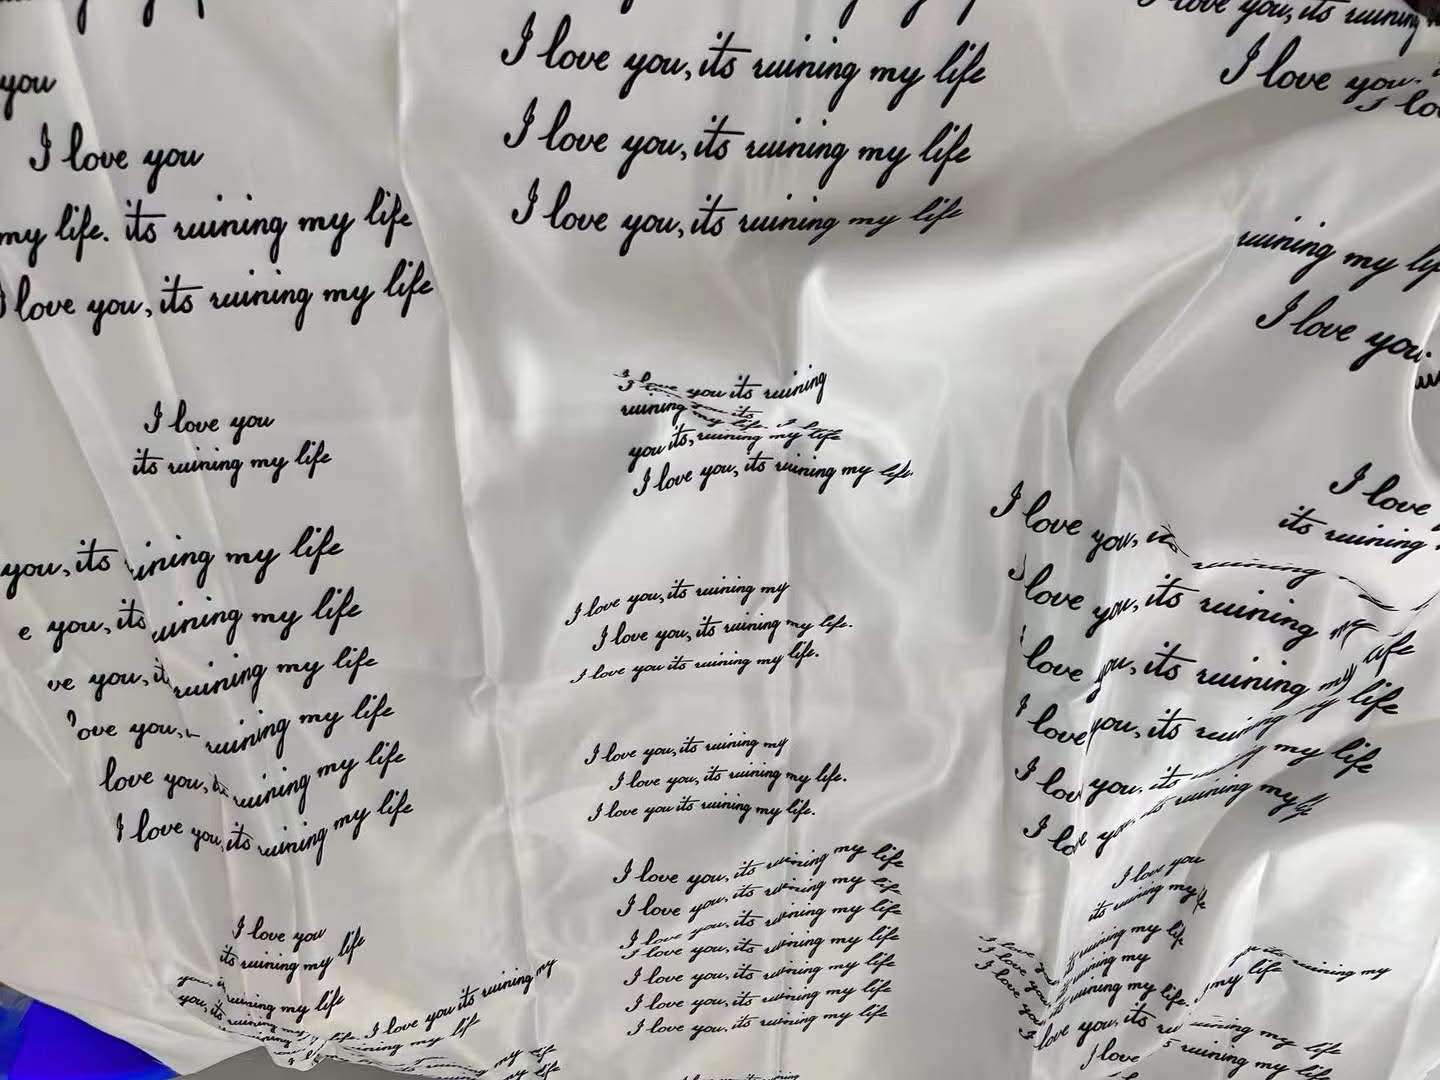 I love you, its ruining my life
I love you, its ruining
I love you,
you
I love you, its ruining my life
I love you
my life. its ruining my life
I love you, its ruining my life
love you, its ruining my life
ruining my life
I love you
I love you its ruining
ruining
you its, ruining my life
I love you, its ruining my life
I love you
its ruining my life
I love
its ruining
I love you,
ruining
you, its ruining my life
e you, its ruining my life
ve you, ruining my life
ove you, ruining my life
love you, ruining my life
I love you, its ruining my life
I love you, its ruining my
I love you, its ruining my life.
I love you its ruining my life.
love you, its ruining life
love you, its ruining my life
I love you, its ruining my life
I love you, its ruining my life
I love you, its ruining my
I love you, its ruining my life.
I love you its ruining my life.
I love you, its ruining my life
I love you, its ruining my life
I love you, its ruining my life
I love you, its ruining my life
I love you, its ruining my life
I love you, its ruining my life
I love you, its ruining my life
I love you
its ruining my life
ruining my life
I love you its ruining my
ruining my life
my life
I love you
its ruining my life
its ruining my life
its ruining my
its ruining my life.
its ruining my
my life
love you, its
ruining my life
love
ruining my life